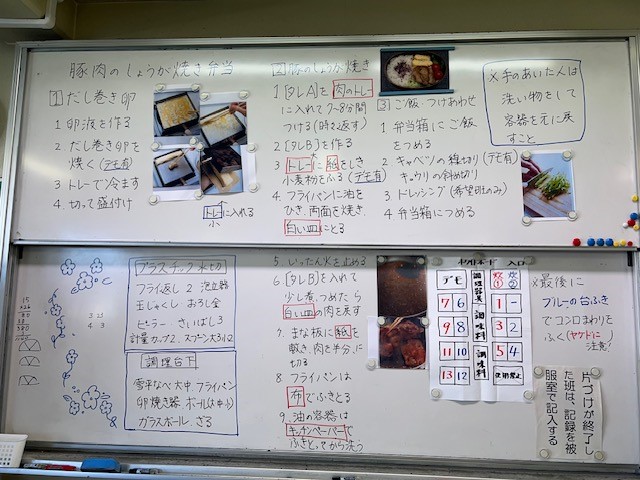 豚肉のしょうが焼き弁当
1 だし巻き卵
1 卵液を作る
2 だし巻き卵を
焼く(デモ有)
3 トレーで冷ます
4 切って盛付け
トレー小に入れる
2 豚のしょうが焼き
1 [タレA]を肉のトレー
に入れて7~8分間
つける(時々返す)
2 [タレB]を作る
3 トレーに紙をしき
小麦粉をふる(デモ有)
4. フライパンに油を
ひき、両面を焼き、
白い皿にとる
5. いったん火を止める
6. [タレB]を入れて
少し煮つめたら
白い皿の肉を戻す
7. まな板に紙を
敷き、肉を半分に
切る
8 フライパンは
布でふきとる
9. 油の容器は
キッチンペーパーで
ふきとってから洗う
3 ご飯・つけあわせ
1 弁当箱にご飯
をつめる
2 キャベツの線切り(デモ有)
キュウリの斜め切り
3 ドレッシング(希望班のみ)
4 弁当箱につめる
※手のあいた人は
洗い物をして
容器を元に戻
すこと
プラスチック水切り
フライ返し2 泡立器
玉じゃくし おろし金
ピーラー さいばし3
計量カップ2、スプーン大3小2
調理台下
雪平なべ大中 フライパン
卵焼き器、ボール(大中小)
ガラスボール、ざる
入口
デモ 調理器具 炊① 炊②
7 6 1 -
9 8 調味料 3 2
11 10 5 4
13 12 調味料
※最後に
ブルーの台ふき
でコンロまわりを
ふく(ヤケドに
注意)
片づけが終了し
た班は、記録を被
服室で記入する